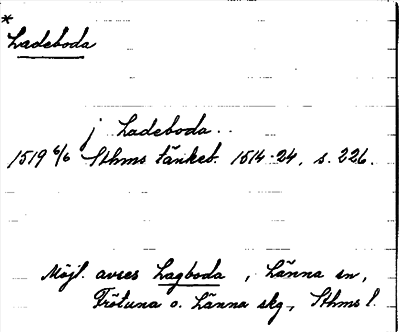 *
Ladeboda
j Ladeboda..
1519 6/6 Sthms tänkeb. 1514-24, s. 226.
Möjl. avses Lagboda, Länna sn,
Frötuna o. Länna skg, Sthms l.